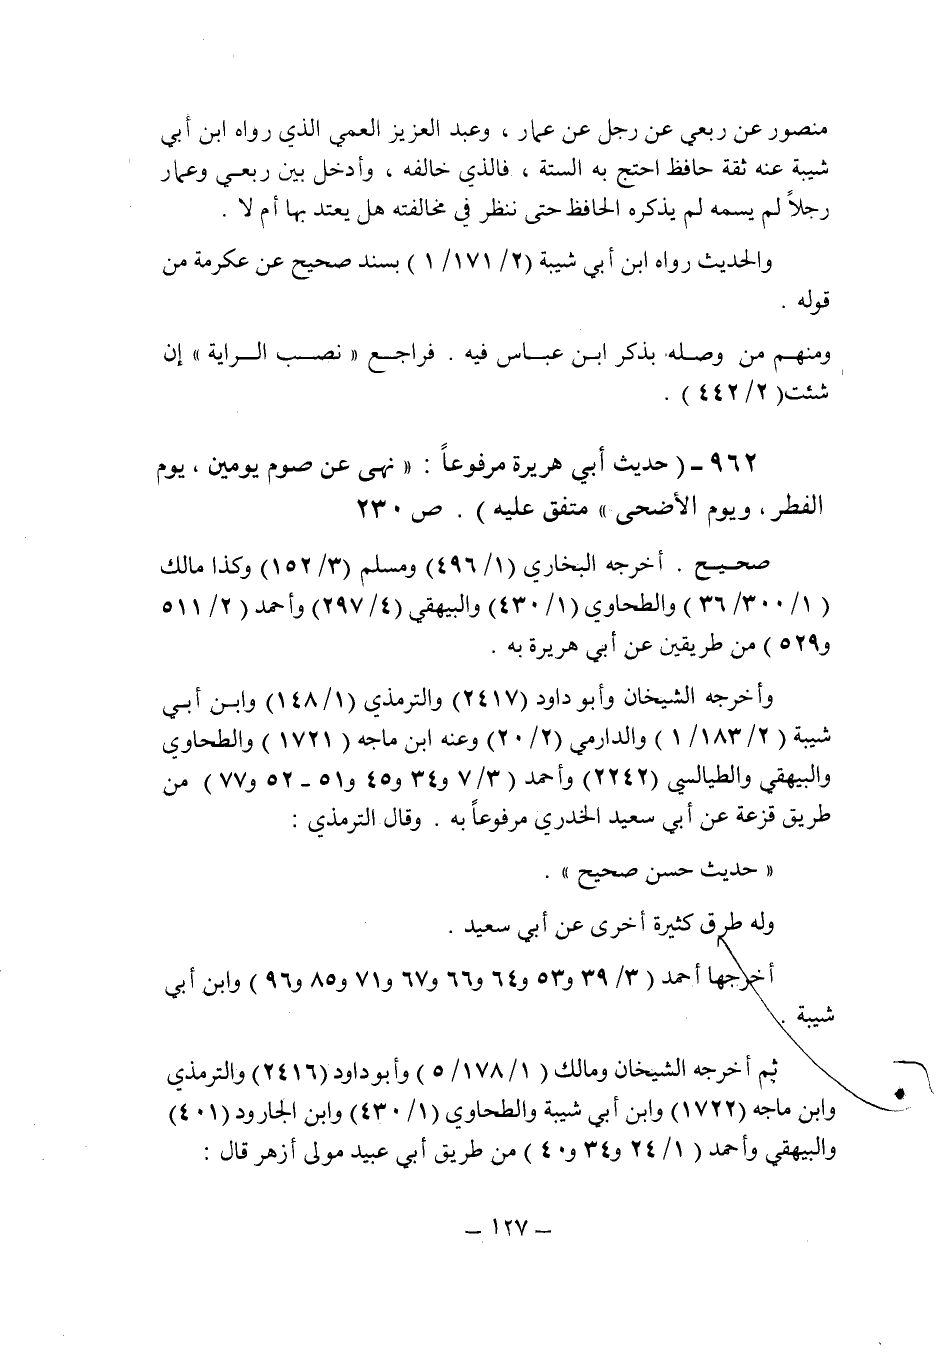 منصور عن ربعي عن رجل عن عمار ، وعبد العزيز العمي الذي رواه ابن أبي
شيبة عنه ثقة حافظ احتج به الستة ، فالذي خالفه ، وأدخل بين ربعي وعمار
رجلاً لم يسمه لم يذكره الحافظ حتى ننظر في مخالفته هل يعتد بها أم لا .
والحديث رواه ابن أبي شيبة (٢/ ١٧١/ ١ ) بسند صحيح عن عكرمة من
قوله .
ومنهم من وصله بذكر ابن عباس فيه . فراجع « نصب الراية » إن
شئت( ٢/ ٤٤٢ ) .
٩٦٢ - ( حديث أبي هريرة مرفوعاً : « نهى عن صوم يومين ، يوم
الفطر ، ويوم الأضحى » متفق عليه ) . ص ٢٣٠
صحيح . أخرجه البخاري (١/ ٤٩٦) ومسلم (٣/ ١٥٢) وكذا مالك
( ١/ ٣٠٠/ ٣٦ ) والطحاوي (١/ ٤٣٠) والبيهقي (٤/ ٢٩٧) وأحمد ( ٢/ ٥١١
و٥٢٩ ) من طريقين عن أبي هريرة به .
وأخرجه الشيخان وأبو داود (٢٤١٧) والترمذي (١/ ١٤٨) وابن أبي
شيبة ( ٢/ ١٨٣/ ١ ) والدارمي (٢/ ٢٠) وعنه ابن ماجه ( ١٧٢١ ) والطحاوي
والبيهقي والطيالسي (٢٢٤٢) وأحمد ( ٣/ ٧ و٣٤ و٤٥ و٥١ - ٥٢ و٧٧ ) من
طريق قزعة عن أبي سعيد الخدري مرفوعاً به . وقال الترمذي :
« حديث حسن صحيح » .
وله طرق كثيرة أخرى عن أبي سعيد .
أخرجها أحمد ( ٣/ ٣٩ و٥٣ و٦٤ و٦٦ و٦٧ و٧١ و٨٥ و٩٦ ) وابن أبي
شيبة .
ثم أخرجه الشيخان ومالك ( ١/ ١٧٨/ ٥ ) وأبو داود (٢٤١٦) والترمذي
وابن ماجه (١٧٢٢) وابن أبي شيبة والطحاوي (١/ ٤٣٠) وابن الجارود (٤٠١)
والبيهقي وأحمد ( ١/ ٢٤ و٣٤ و٤٠ ) من طريق أبي عبيد مولى أزهر قال :
- ١٢٧ -